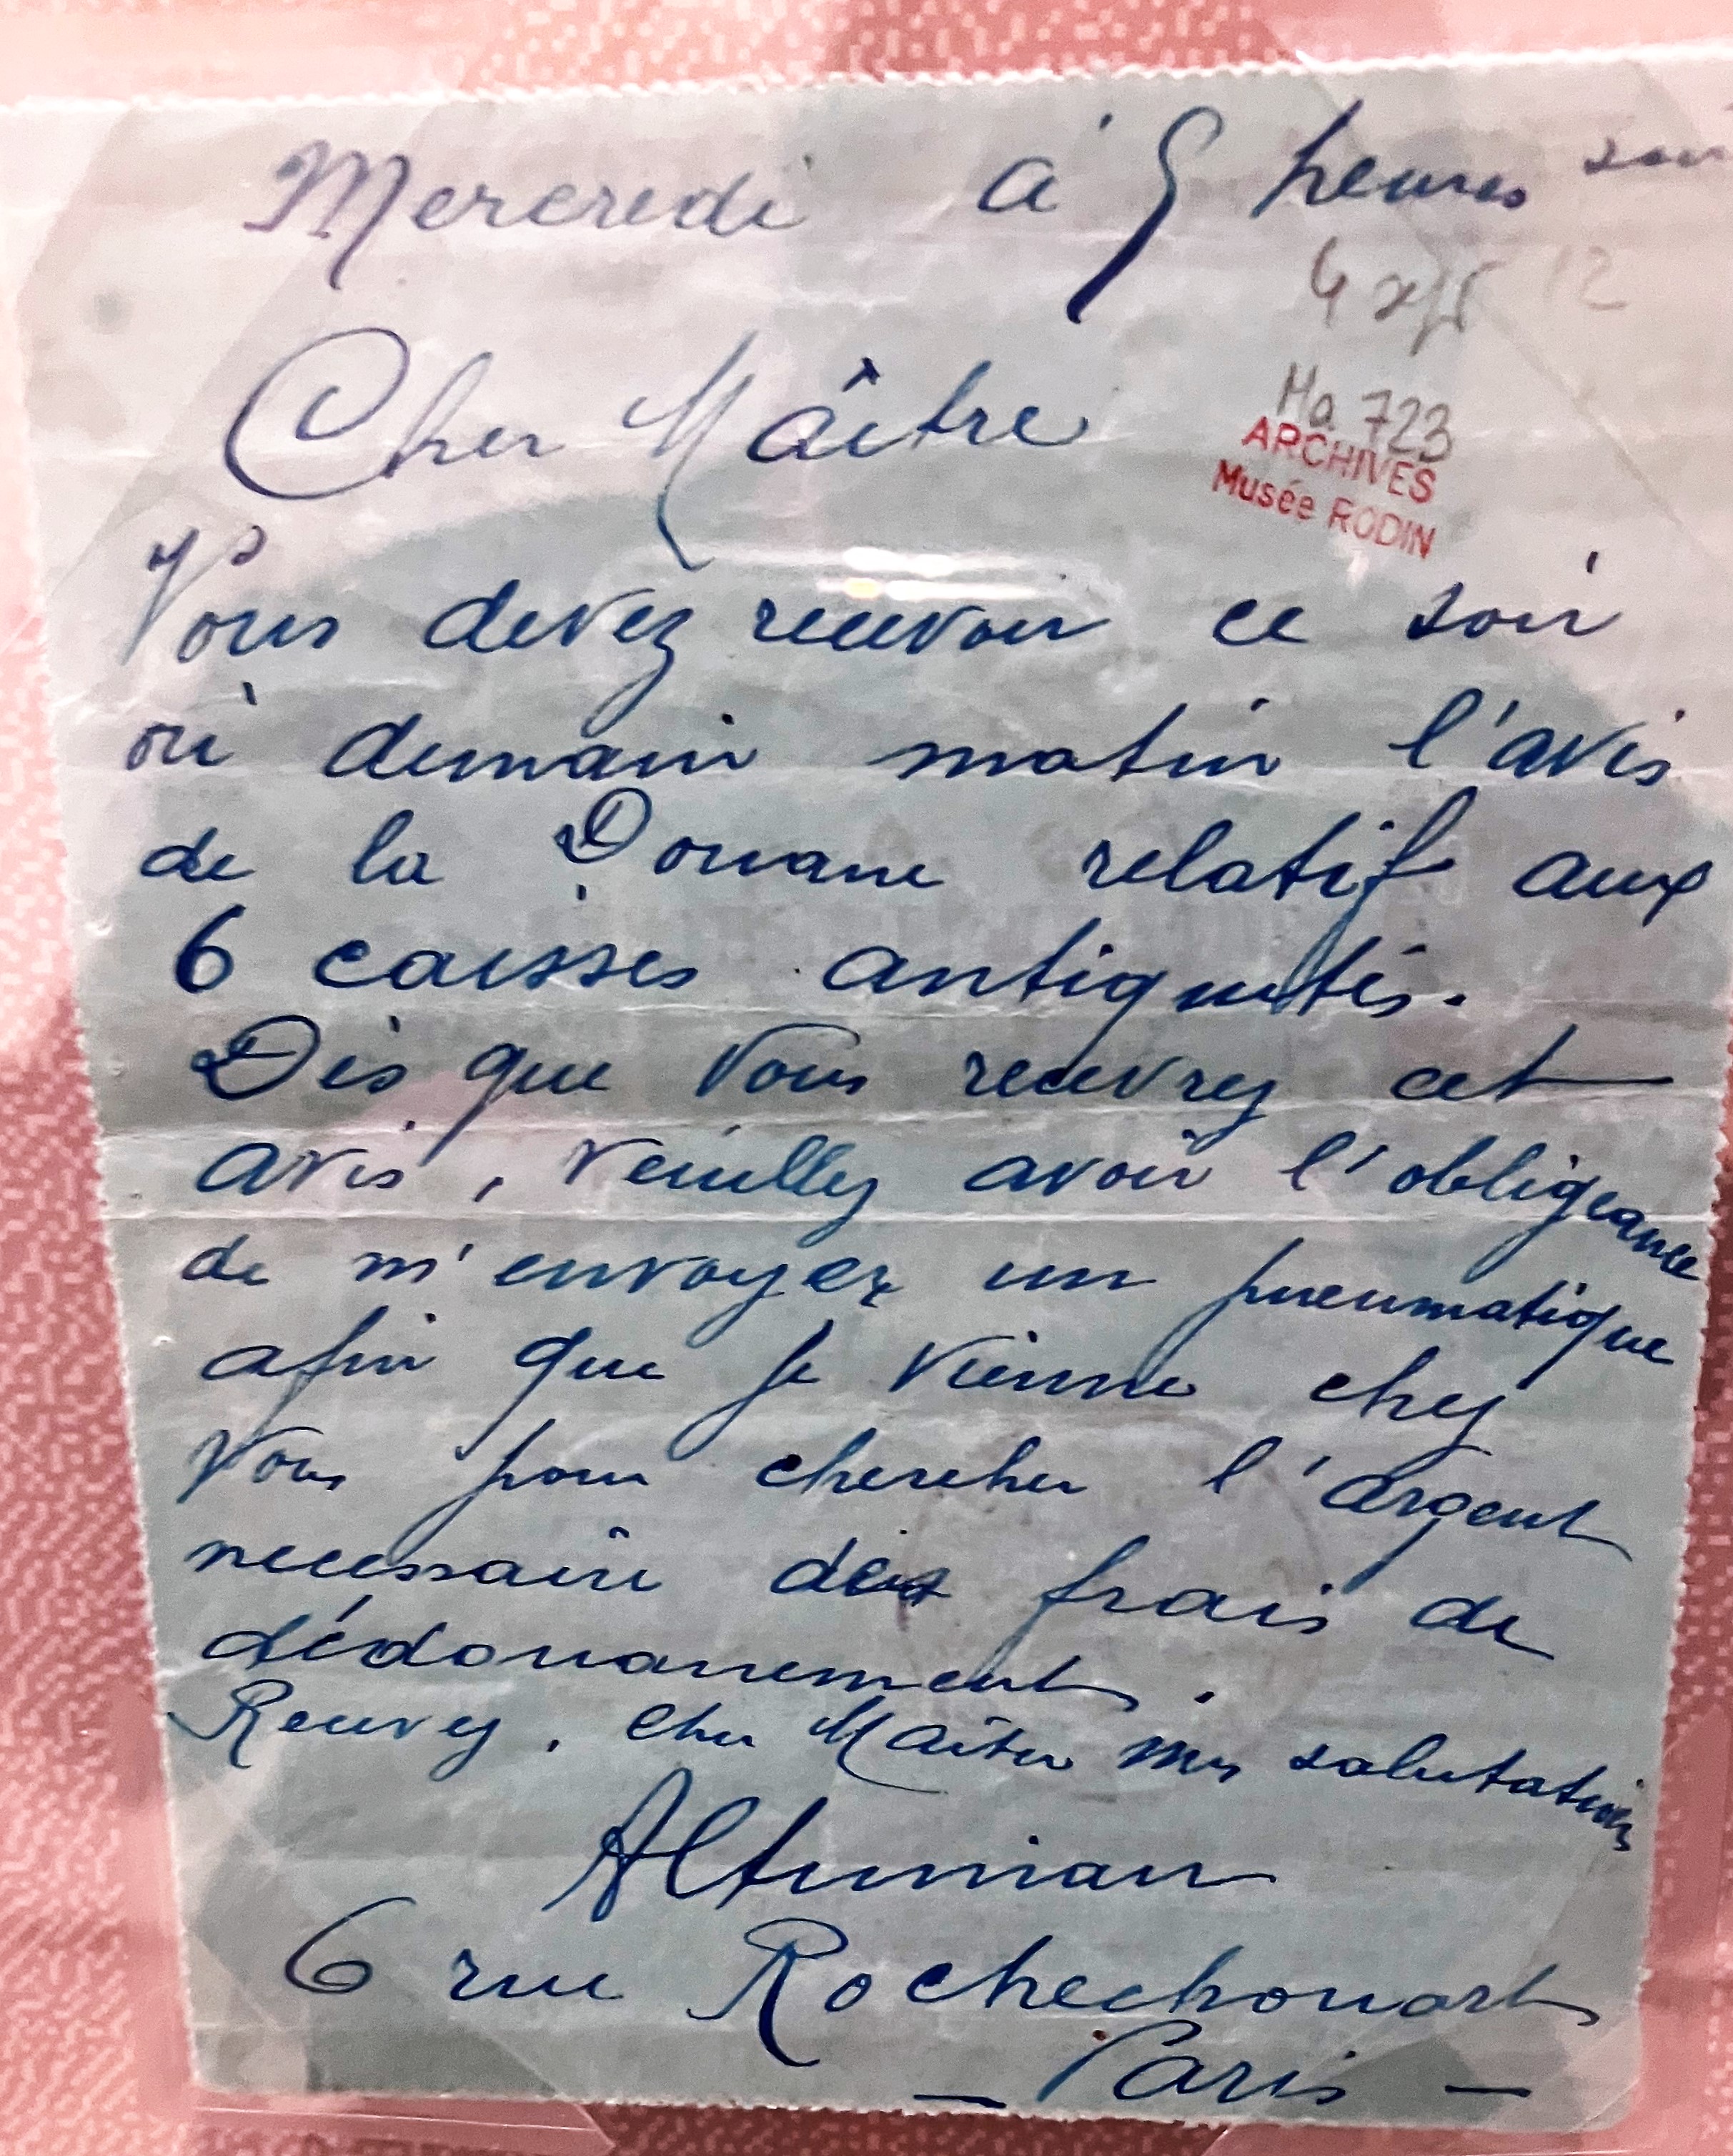 Mercredi à 5 heures soir
4 12
Ha 723
ARCHIVES
Musée RODIN
Cher Maître
Vous devez recevoir ce soir
où demain matin l'avis
de la Douane relatif aux
6 caisses antiquités.
Dès que vous recevrez cet
avis, veuillez avoir l'obligeance
de m'envoyer un pneumatique
afin que je vienne chez
vous pour chercher l'argent
necessaire des frais de
dédouanement.
Recevez, cher Maître mes salutations
Altounian
6 rue Rochechouart
— Paris —